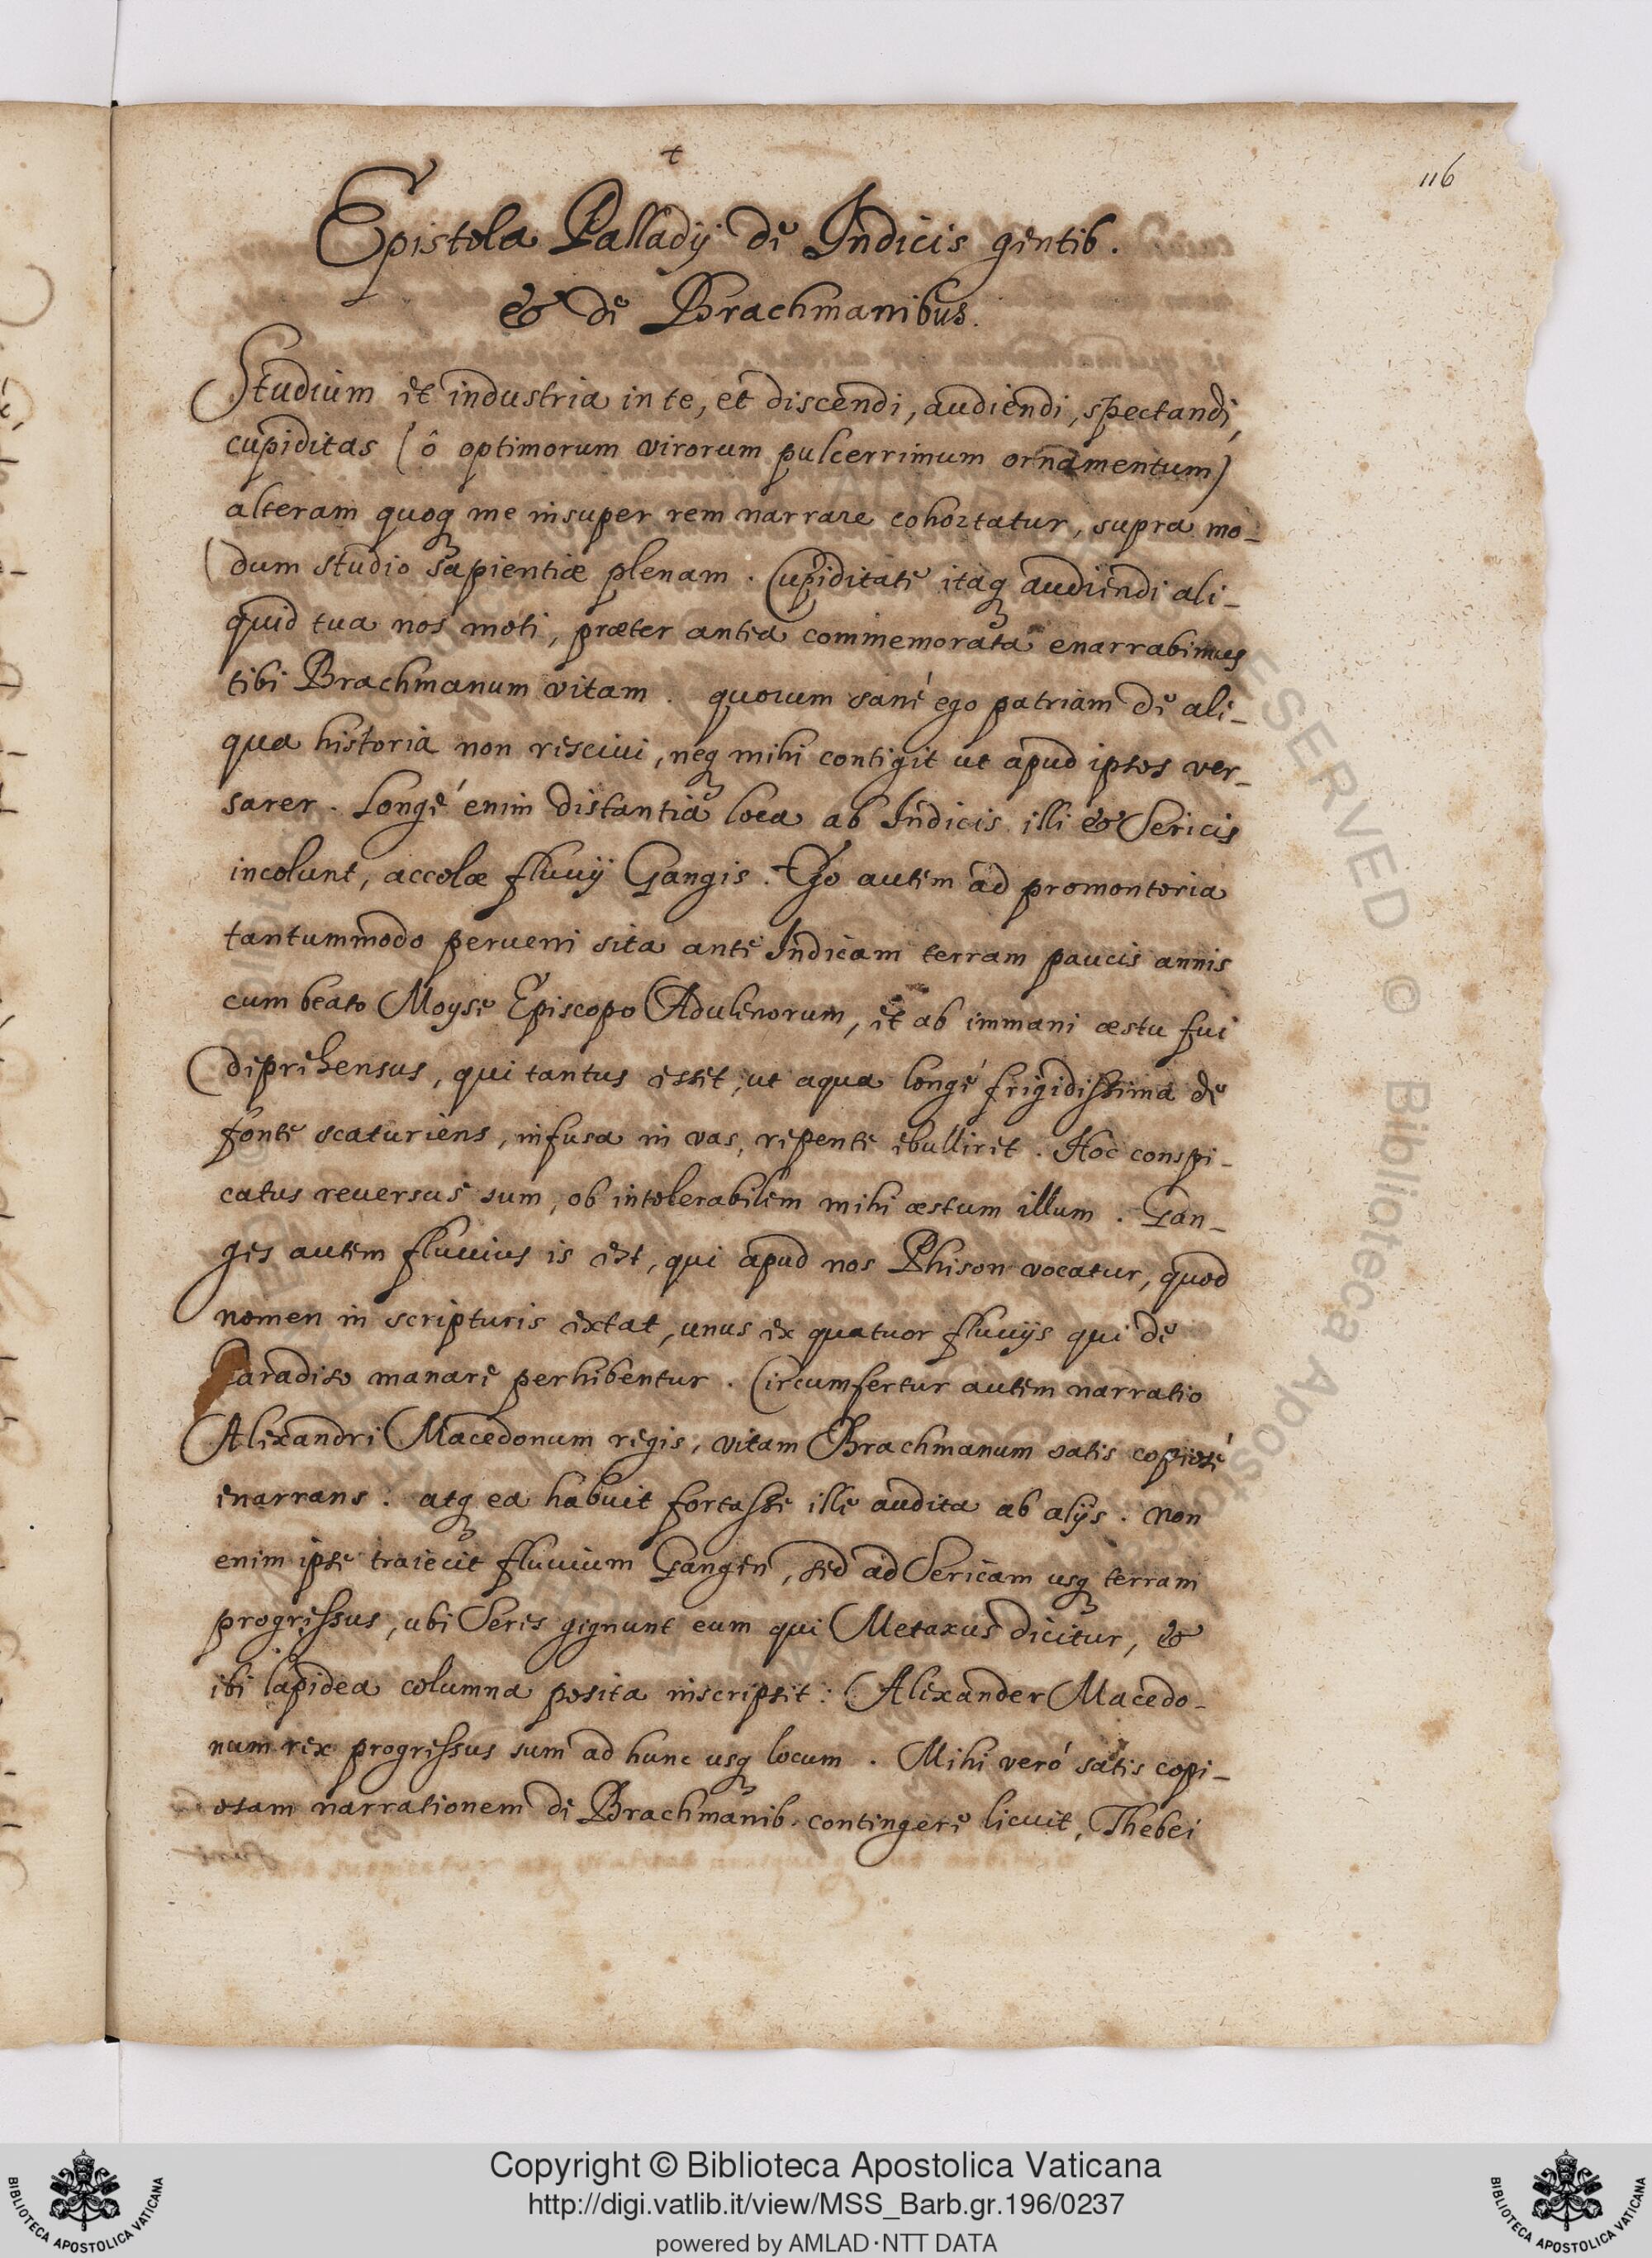 116
+
Epistola Palladij de Indicis gentib.
& de Brachmanibus.
Studium et industria in te, et discendi, audiendi, spectandi,
cupiditas (ô optimorum virorum pulcerrimum ornamentum)
alteram quoq me insuper rem narrare cohortatur, supra mo-
dum studio sapientiæ plenam. Cupiditate itaq audiendi ali-
quid tua nos moti, præter antea commemorata enarrabimus
tibi Brachmanum vitam. quorum sanè ego patriam de ali-
qua historia non resciui, neq mihi contigit ut apud ipsos ver-
sarer. Longè enim distantia loca ab Indicis illi & Sericis
incolunt, accolæ fluuij Gangis. Ego autem ad promontoria
tantummodo perueni sita ante Indicam terram paucis annis
cum beato Moyse Episcopo Adulenorum, et ab immani æstu fui
deprehensus, qui tantus esset, ut aqua longè frigidissima de
fonte scaturiens, infusa in vas, repente ebulliret. Hoc conspi-
catus reuersus sum, ob intolerabilem mihi æstum illum. Gan-
ges autem fluuius is est, qui apud nos Phison vocatur, quod
nomen in scripturis extat, unus ex quatuor fluuijs qui de
Paradiso manare perhibentur. Circumfertur autem narratio
Alexandri Macedonum regis, vitam Brachmanum satis copiosè
enarrans: atq ea habuit fortasse ille audita ab alijs. Non
enim ipse traiecit fluuium Gangen, sed ad Sericam usq terram
progressus, ubi Seres gignunt eum qui Metaxus dicitur, &
ibi lapidea columna posita inscripsit: Alexander Macedo-
num rex progressus sum ad hunc usq locum. Mihi verò satis copi-
osam narrationem de Brachmanib. contingere licuit, Thebei
RESERVED © Biblioteca Apostolica
Copyright © Biblioteca Apostolica Vaticana
http://digi.vatlib.it/view/MSS_Barb.gr.196/0237
powered by AMLAD·NTT DATA
BIBLIOTECA APOSTOLICA VATICANA
BIBLIOTECA APOSTOLICA VATICANA